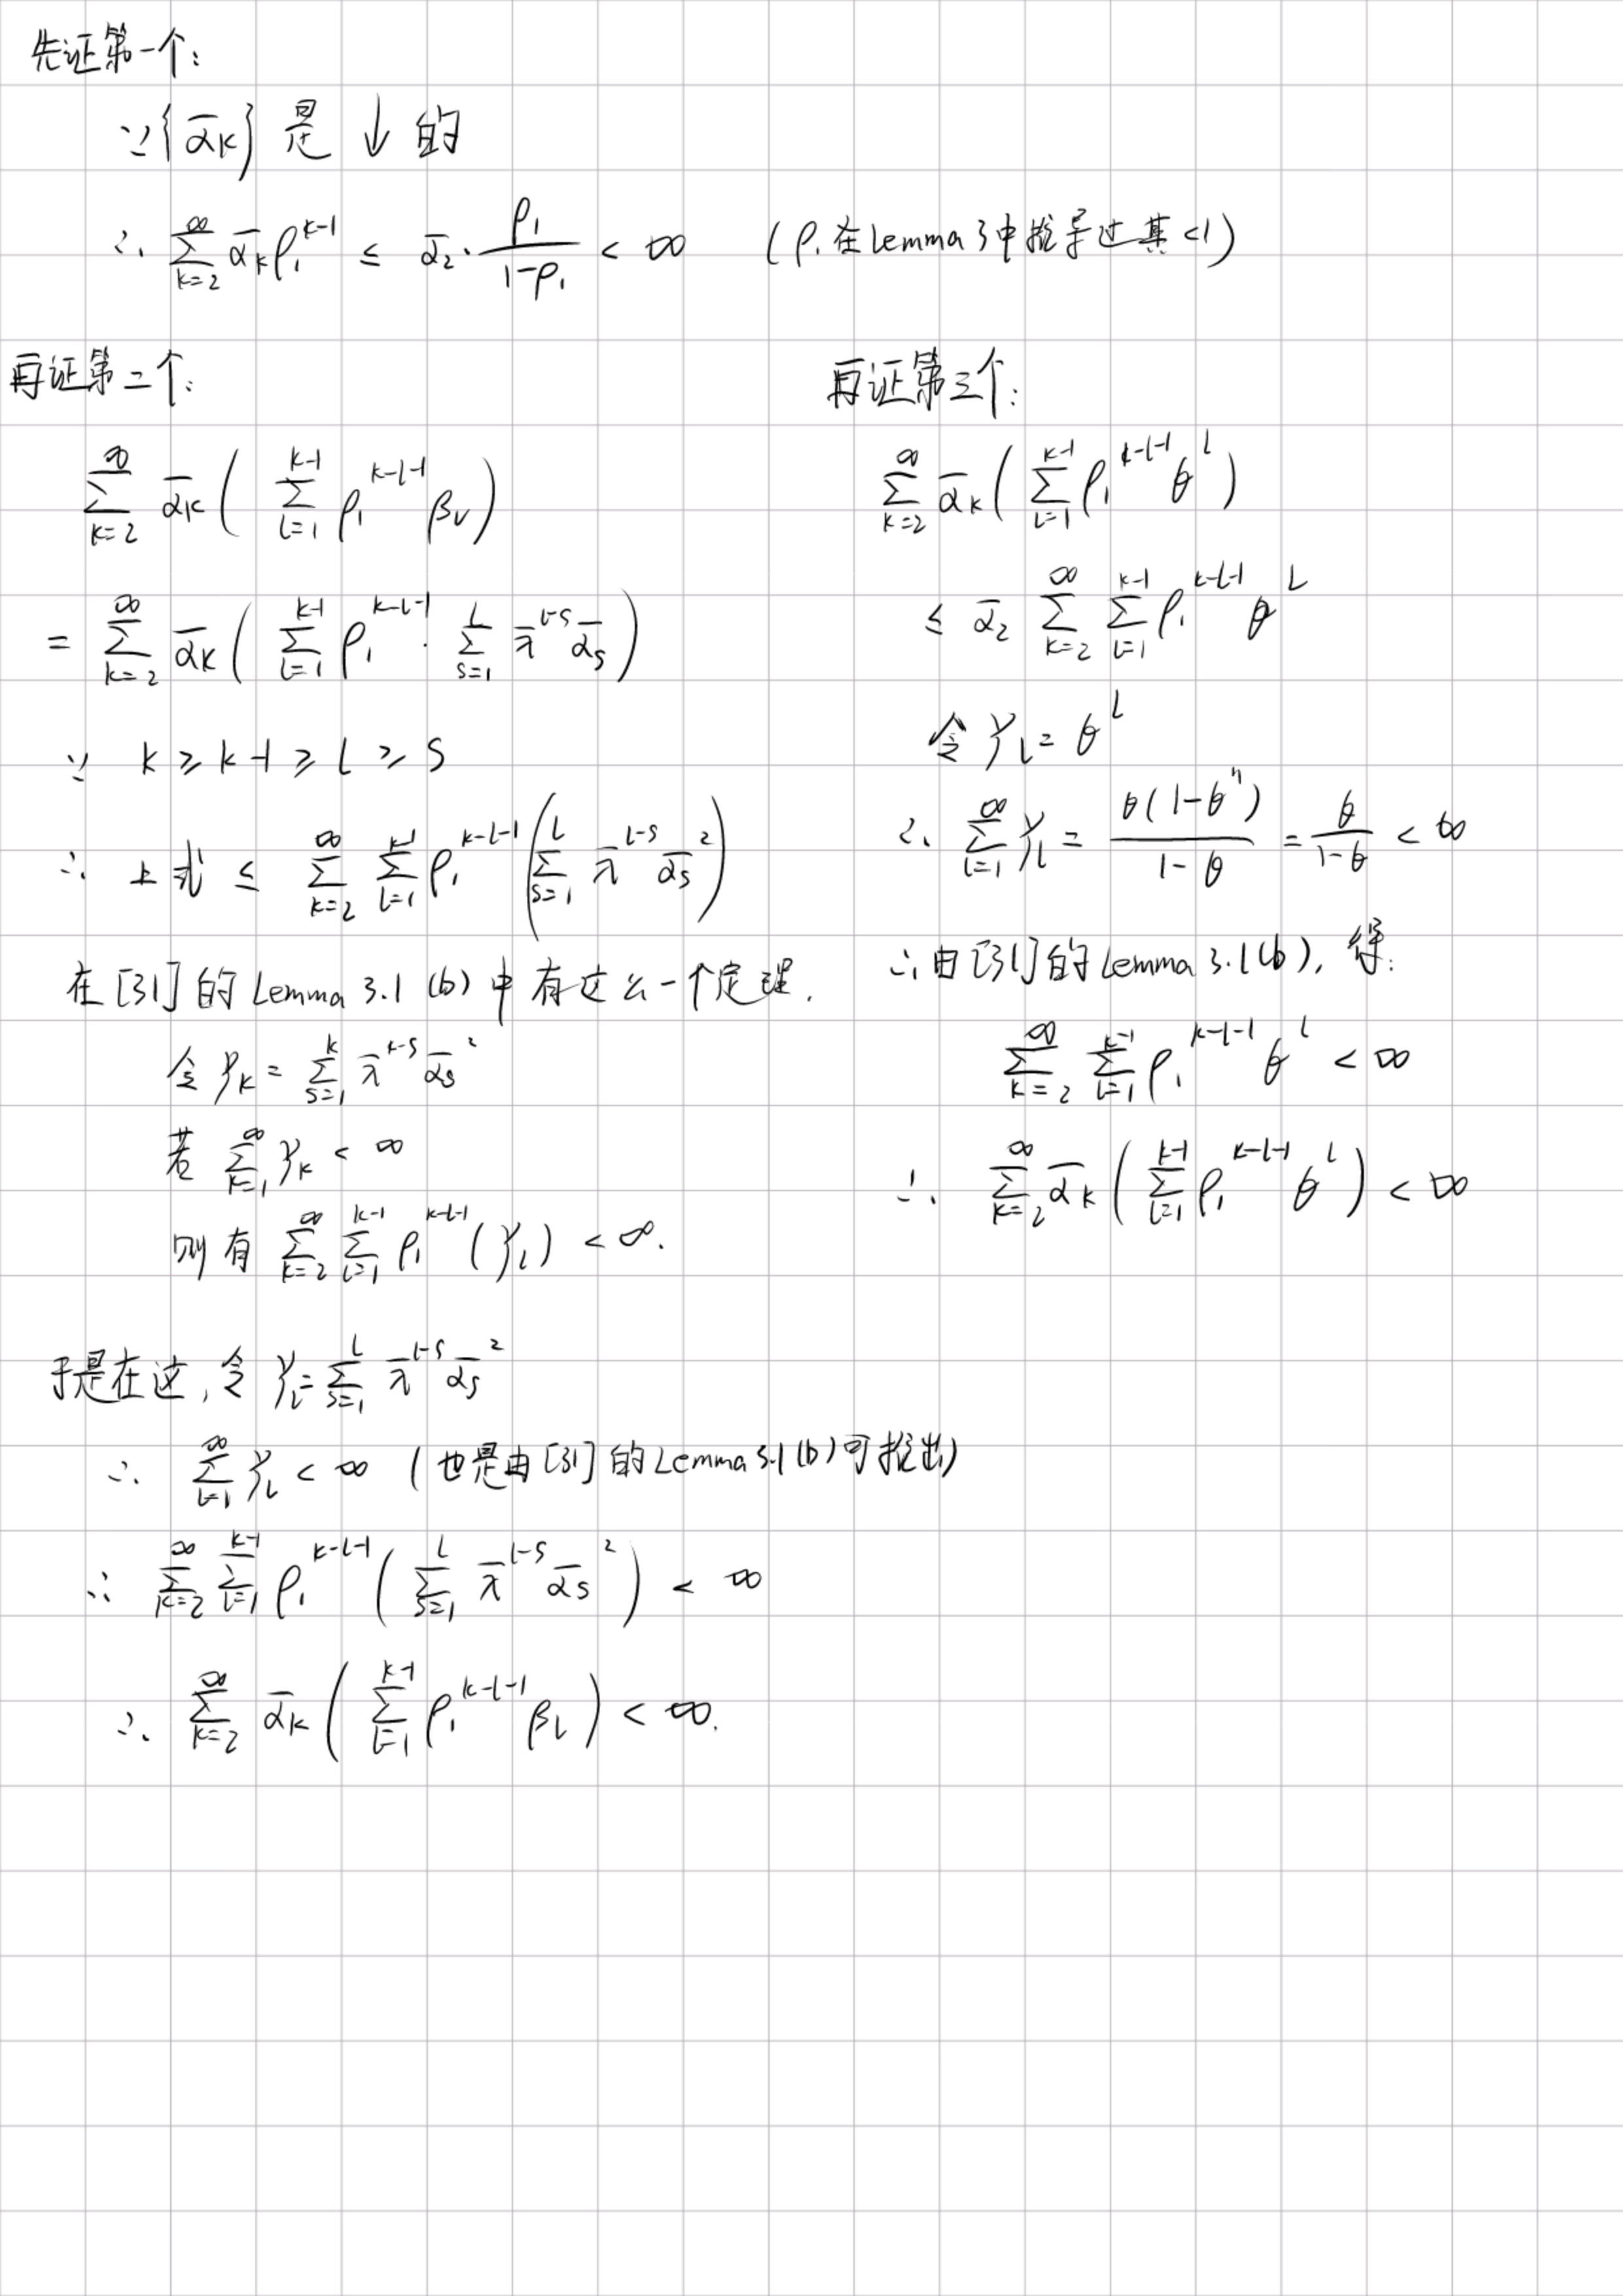 先证第一个:
∵{ᾱ_k} 是 ↓ 的
∴ ∑_{k=2}^{∞} ᾱ_k ρ_1^{k-1} ≤ ᾱ_2 · ρ_1/(1-ρ_1) < ∞ (ρ_1在Lemma 3中推导过其<1)
再证第二个:
∑_{k=2}^{∞} ᾱ_k ( ∑_{l=1}^{k-1} ρ_1^{k-l-1} β_l )
= ∑_{k=2}^{∞} ᾱ_k ( ∑_{l=1}^{k-1} ρ_1^{k-l-1} · ∑_{s=1}^{l} λ̄^{l-s} ᾱ_s )
∵ k ≥ k-1 ≥ l ≥ s
∴ 上式 ≤ ∑_{k=2}^{∞} ∑_{l=1}^{k-1} ρ_1^{k-l-1} ( ∑_{s=1}^{l} λ̄^{l-s} ᾱ_s^2 )
在[31]的Lemma 3.1 (b)中有这么一个定理.
令 γ_k = ∑_{s=1}^{k} λ̄^{k-s} ᾱ_s^2
若 ∑_{k=1}^{∞} γ_k < ∞
则有 ∑_{k=2}^{∞} ∑_{l=1}^{k-1} ρ_1^{k-l-1} (γ_l) < ∞.
于是在这,令 γ_l = ∑_{s=1}^{l} λ̄^{l-s} ᾱ_s^2
∴ ∑_{l=1}^{∞} γ_l < ∞ (也是由[31]的Lemma 3.1(b)可推出)
∴ ∑_{k=2}^{∞} ∑_{l=1}^{k-1} ρ_1^{k-l-1} ( ∑_{s=1}^{l} λ̄^{l-s} ᾱ_s^2 ) < ∞
∴ ∑_{k=2}^{∞} ᾱ_k ( ∑_{l=1}^{k-1} ρ_1^{k-l-1} β_l ) < ∞.
再证第三个:
∑_{k=2}^{∞} ᾱ_k ( ∑_{l=1}^{k-1} ρ_1^{k-l-1} θ^l )
≤ ᾱ_2 ∑_{k=2}^{∞} ∑_{l=1}^{k-1} ρ_1^{k-l-1} θ^l
令 γ_l = θ^l
∴ ∑_{l=1}^{∞} γ_l = θ(1-θ^n)/(1-θ) = θ/(1-θ) < ∞
∴由[31]的Lemma 3.1(b), 得:
∑_{k=2}^{∞} ∑_{l=1}^{k-1} ρ_1^{k-l-1} θ^l < ∞
∴ ∑_{k=2}^{∞} ᾱ_k ( ∑_{l=1}^{k-1} ρ_1^{k-l-1} θ^l ) < ∞